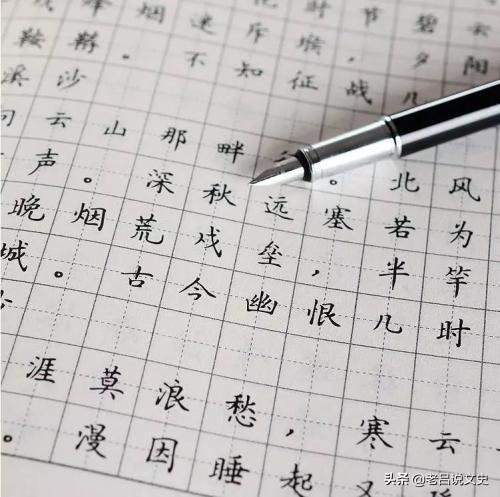 时节碧云
戍烽烟迷斥堠，夕阳
鞍鞯。不知征战几
溪沙
云山那畔。北风
声。深秋远塞若为
晚烟荒戍垒，半竿
城。古今幽恨几时
涯莫浪愁，寒云
。漫因睡起
头条 @老吕说文史